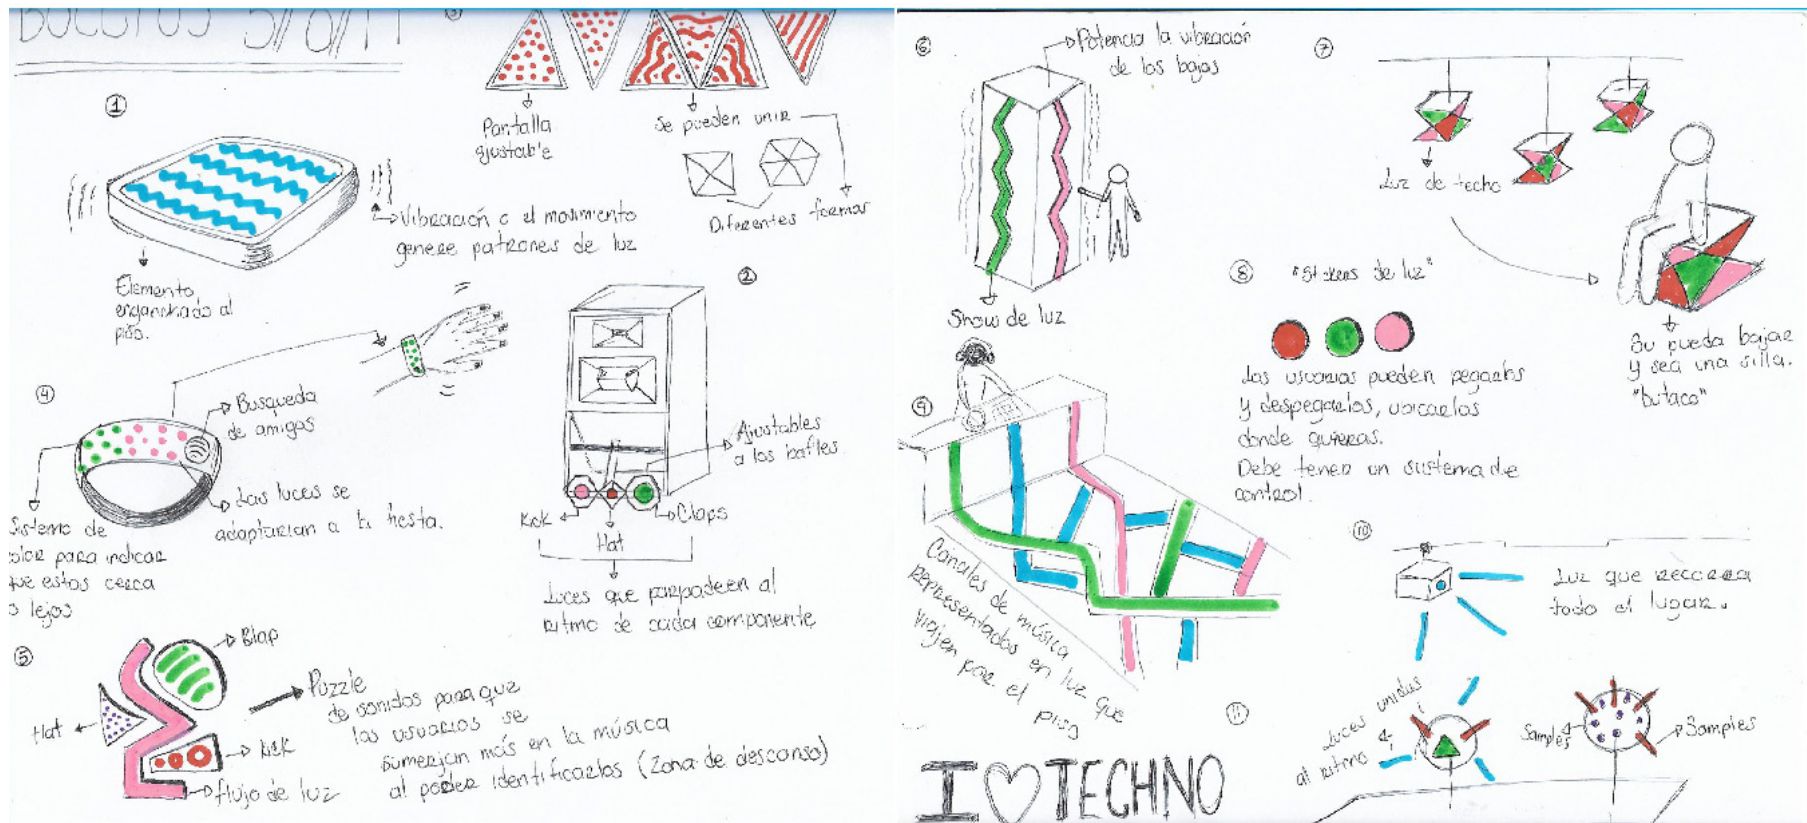 ③
Pantalla
ajustable
Se pueden unir
Diferentes formas
①
Vibración o el movimiento
genere patrones de luz
Elemento
enganchado al
piso.
②
Ajustables
a los bafles
Kick
Hat
Claps
Luces que parpadeen al
ritmo de cada componente
④
Busqueda
de amigos
Las luces se
adaptarian a la fiesta.
Sistema de
color para indicar
que estas cerca
o lejos
⑤
Blap
Hat
Kick
flujo de luz
Puzzle
de sonidos para que
los usuarios se
sumerjan más en la música
al poder identificarlos (zona de descanso)
⑥
Potencia la vibración
de los bajos
Show de luz
⑦
Luz de techo
Su pueda bajar
y sea una silla.
"butaco"
⑧ "Stickers de luz"
Los usuarios pueden pegarlos
y despegarlos, ubicarlos
donde quieras.
Debe tener un sistema de
control.
⑨
Canales de música
representados en luz que
viajen por el piso
⑩
Luz que recorra
todo el lugar.
⑪
Luces unidas
al ritmo
Samples
Samples
I TECHNO